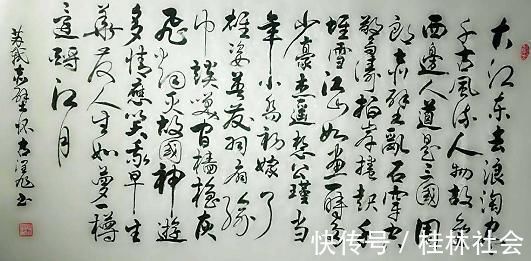 大江东去浪淘尽
千古风流人物故垒
西边人道是三国周
郎赤壁乱石穿空
惊涛拍岸捲起千
堆雪江山如画一时多
少豪杰遥想公瑾当
年小乔初嫁了
雄姿英发羽扇纶
巾谈笑间樯橹灰
飞烟灭故國神遊
多情应笑我早生
华发人生如梦一樽
還酹江月
苏轼赤壁怀古 书
快传号 / 桂林社会